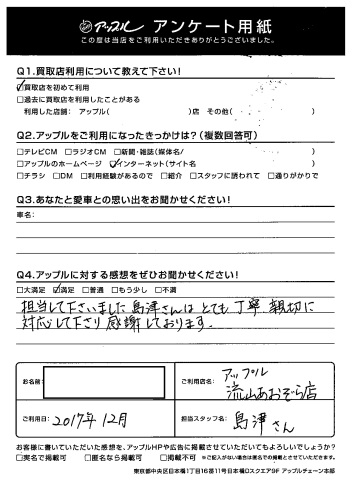 アップル アンケート用紙
この度は当店をご利用いただきありがとうございました。
Q1.買取店利用について教えて下さい!
☑買取店を初めて利用
□過去に買取店を利用したことがある
利用した店舗:アップル( )店 その他( )
Q2.アップルをご利用になったきっかけは?(複数回答可)
□テレビCM □ラジオCM □新聞・雑誌(媒体名/ )
□アップルのホームページ ☑インターネット(サイト名 )
□チラシ □DM □利用経験があるので □紹介 □スタッフに誘われて □通りがかりで
Q3.あなたと愛車との思い出をお聞かせください!
車名:
Q4.アップルに対する感想をぜひお聞かせください!
□大満足 ☑満足 □普通 □もう少し □不満
担当して下さいました島津さんはとても丁寧、親切に
対応して下さり感謝しております。
お名前
ご利用店名: アップル
流山あおぞら店
ご利用日: 2017年12月
担当スタッフ名: 島津さん
お客様に書いていただいた感想を、アップルHPや広告に掲載させていただいてもよろしいでしょうか?
□実名で掲載可 □匿名なら掲載可 □掲載不可 ※ご記入がない場合は匿名での掲載とさせていただきます。
東京都中央区日本橋1丁目16番11号日本橋Dスクエア9F アップルチェーン本部